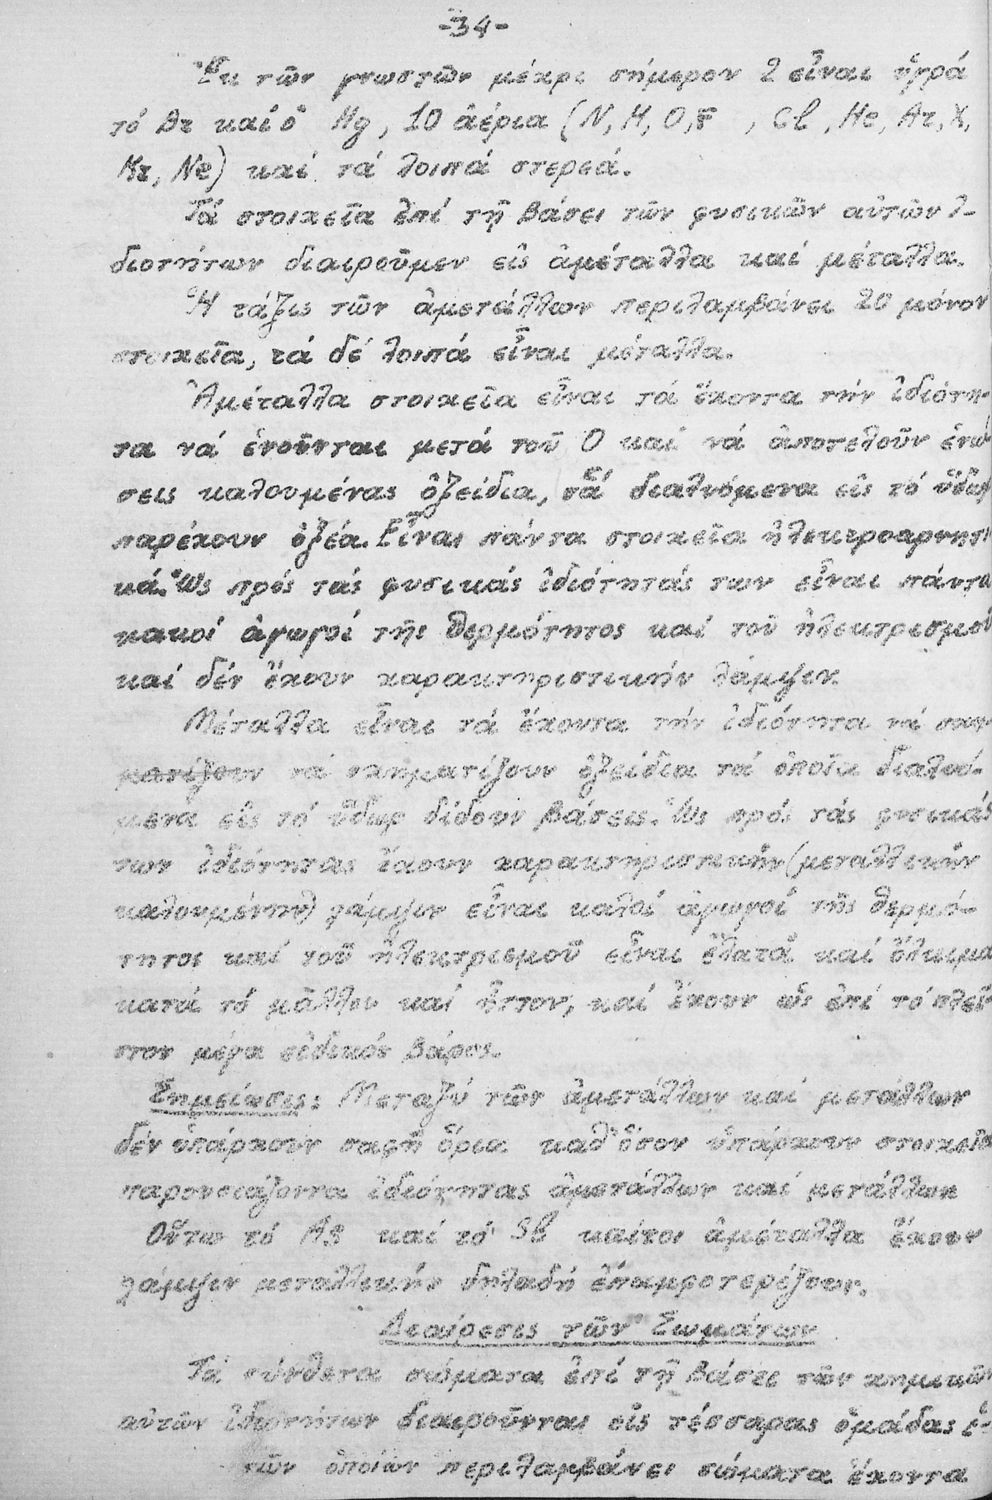 -34-
Ἐκ τῶν γνωστῶν μέχρι σήμερον 2 εἶναι ὑγρά
τό Br καί ὁ Hg, 10 ἀέρια (N, H, O, F , Cl, He, Ar, X,
Kr, Ne) καί τά λοιπά στερεά.
Τά στοιχεῖα ἐπί τῇ βάσει τῶν φυσικῶν αὐτῶν ἰ-
διοτήτων διαιροῦμεν εἰς ἀμέταλλα καί μέταλλα.
Ἡ τάξις τῶν ἀμετάλλων περιλαμβάνει 20 μόνον
στοιχεῖα, τά δέ λοιπά εἶναι μέταλλα.
Ἀμέταλλα στοιχεῖα εἶναι τά ἔχοντα τήν ἰδιότη-
τα νά ἑνοῦνται μετά τοῦ O καί νά ἀποτελοῦν ἑνώ
σεις καλουμένας ὀξείδια, διαλυόμενα εἰς τό ὕδωρ
παρέχουν ὀξέα. Εἶναι πάντα στοιχεῖα ἠλεκτροαρνητι
κά. Ὡς πρός τάς φυσικάς ἰδιότητάς των εἶναι πάντα
κακοί ἀγωγοί τῆς θερμότητος καί τοῦ ἠλεκτρισμοῦ
καί δέν ἔχουν χαρακτηριστικήν λάμψιν.
Μέταλλα εἶναι τά ἔχοντα τήν ἰδιότητα νά
νά σχηματίζουν ὀξείδια τά ὁποῖα διαλυό-
μενα εἰς τό ὕδωρ δίδουν βάσεις. Ὡς πρός τάς φυσικάς
των ἰδιότητας ἔχουν χαρακτηριστικήν (μεταλλικήν
καλουμένην) λάμψιν εἶναι καλοί ἀγωγοί τῆς θερμό-
τητος καί τοῦ ἠλεκτρισμοῦ εἶναι ἐλατά καί ὄλκιμα
κατά τό μᾶλλον καί ἧττον, καί ἔχουν ὡς ἐπί τό πλεῖ
στον μέγα εἰδικόν βάρος.
Σημείωσις: Μεταξύ τῶν ἀμετάλλων καί μετάλλων
δέν ὑπάρχουν σαφῆ ὅρια καθ' ὅσον ὑπάρχουν στοιχεῖα
παρουσιάζοντα ἰδιότητας ἀμετάλλων καί μετάλλων
Οὕτω τό As καί τό Sb καίτοι ἀμέταλλα ἔχουν
λάμψιν μεταλλικήν δηλαδή ἐπαμφοτερίζουν.
Διαίρεσις τῶν Σωμάτων
Τά σύνθετα σώματα ἐπί τῇ βάσει τῶν χημικῶν
αὐτῶν ἰδιοτήτων διαιροῦνται εἰς τέσσαρας ὁμάδας ἑ-
τῶν ὁποίων περιλαμβάνει σώματα ἔχοντα